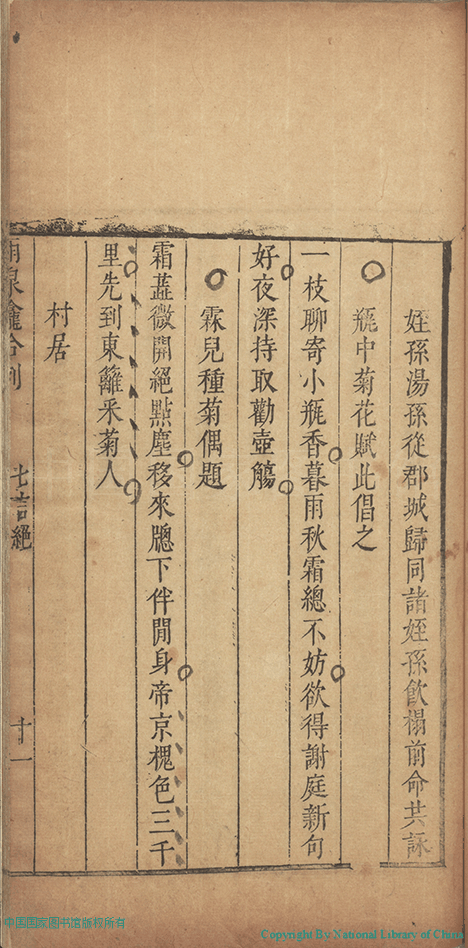 姪孫湯孫從郡城歸同諸姪孫飲榻前命共詠
瓶中菊花賦此倡之
一枝聊寄小瓶香暮雨秋霜總不妨欲得謝庭新句
好夜深持取勸壺觴
霖兒種菊偶題
霜蕋微開絕點塵移來牕下伴閒身帝京槐色三千
里先到東籬采菊人
村居
雨泉龕合刻
七言絕
十一
中国国家图书馆版权所有
Copyright By National Library of China